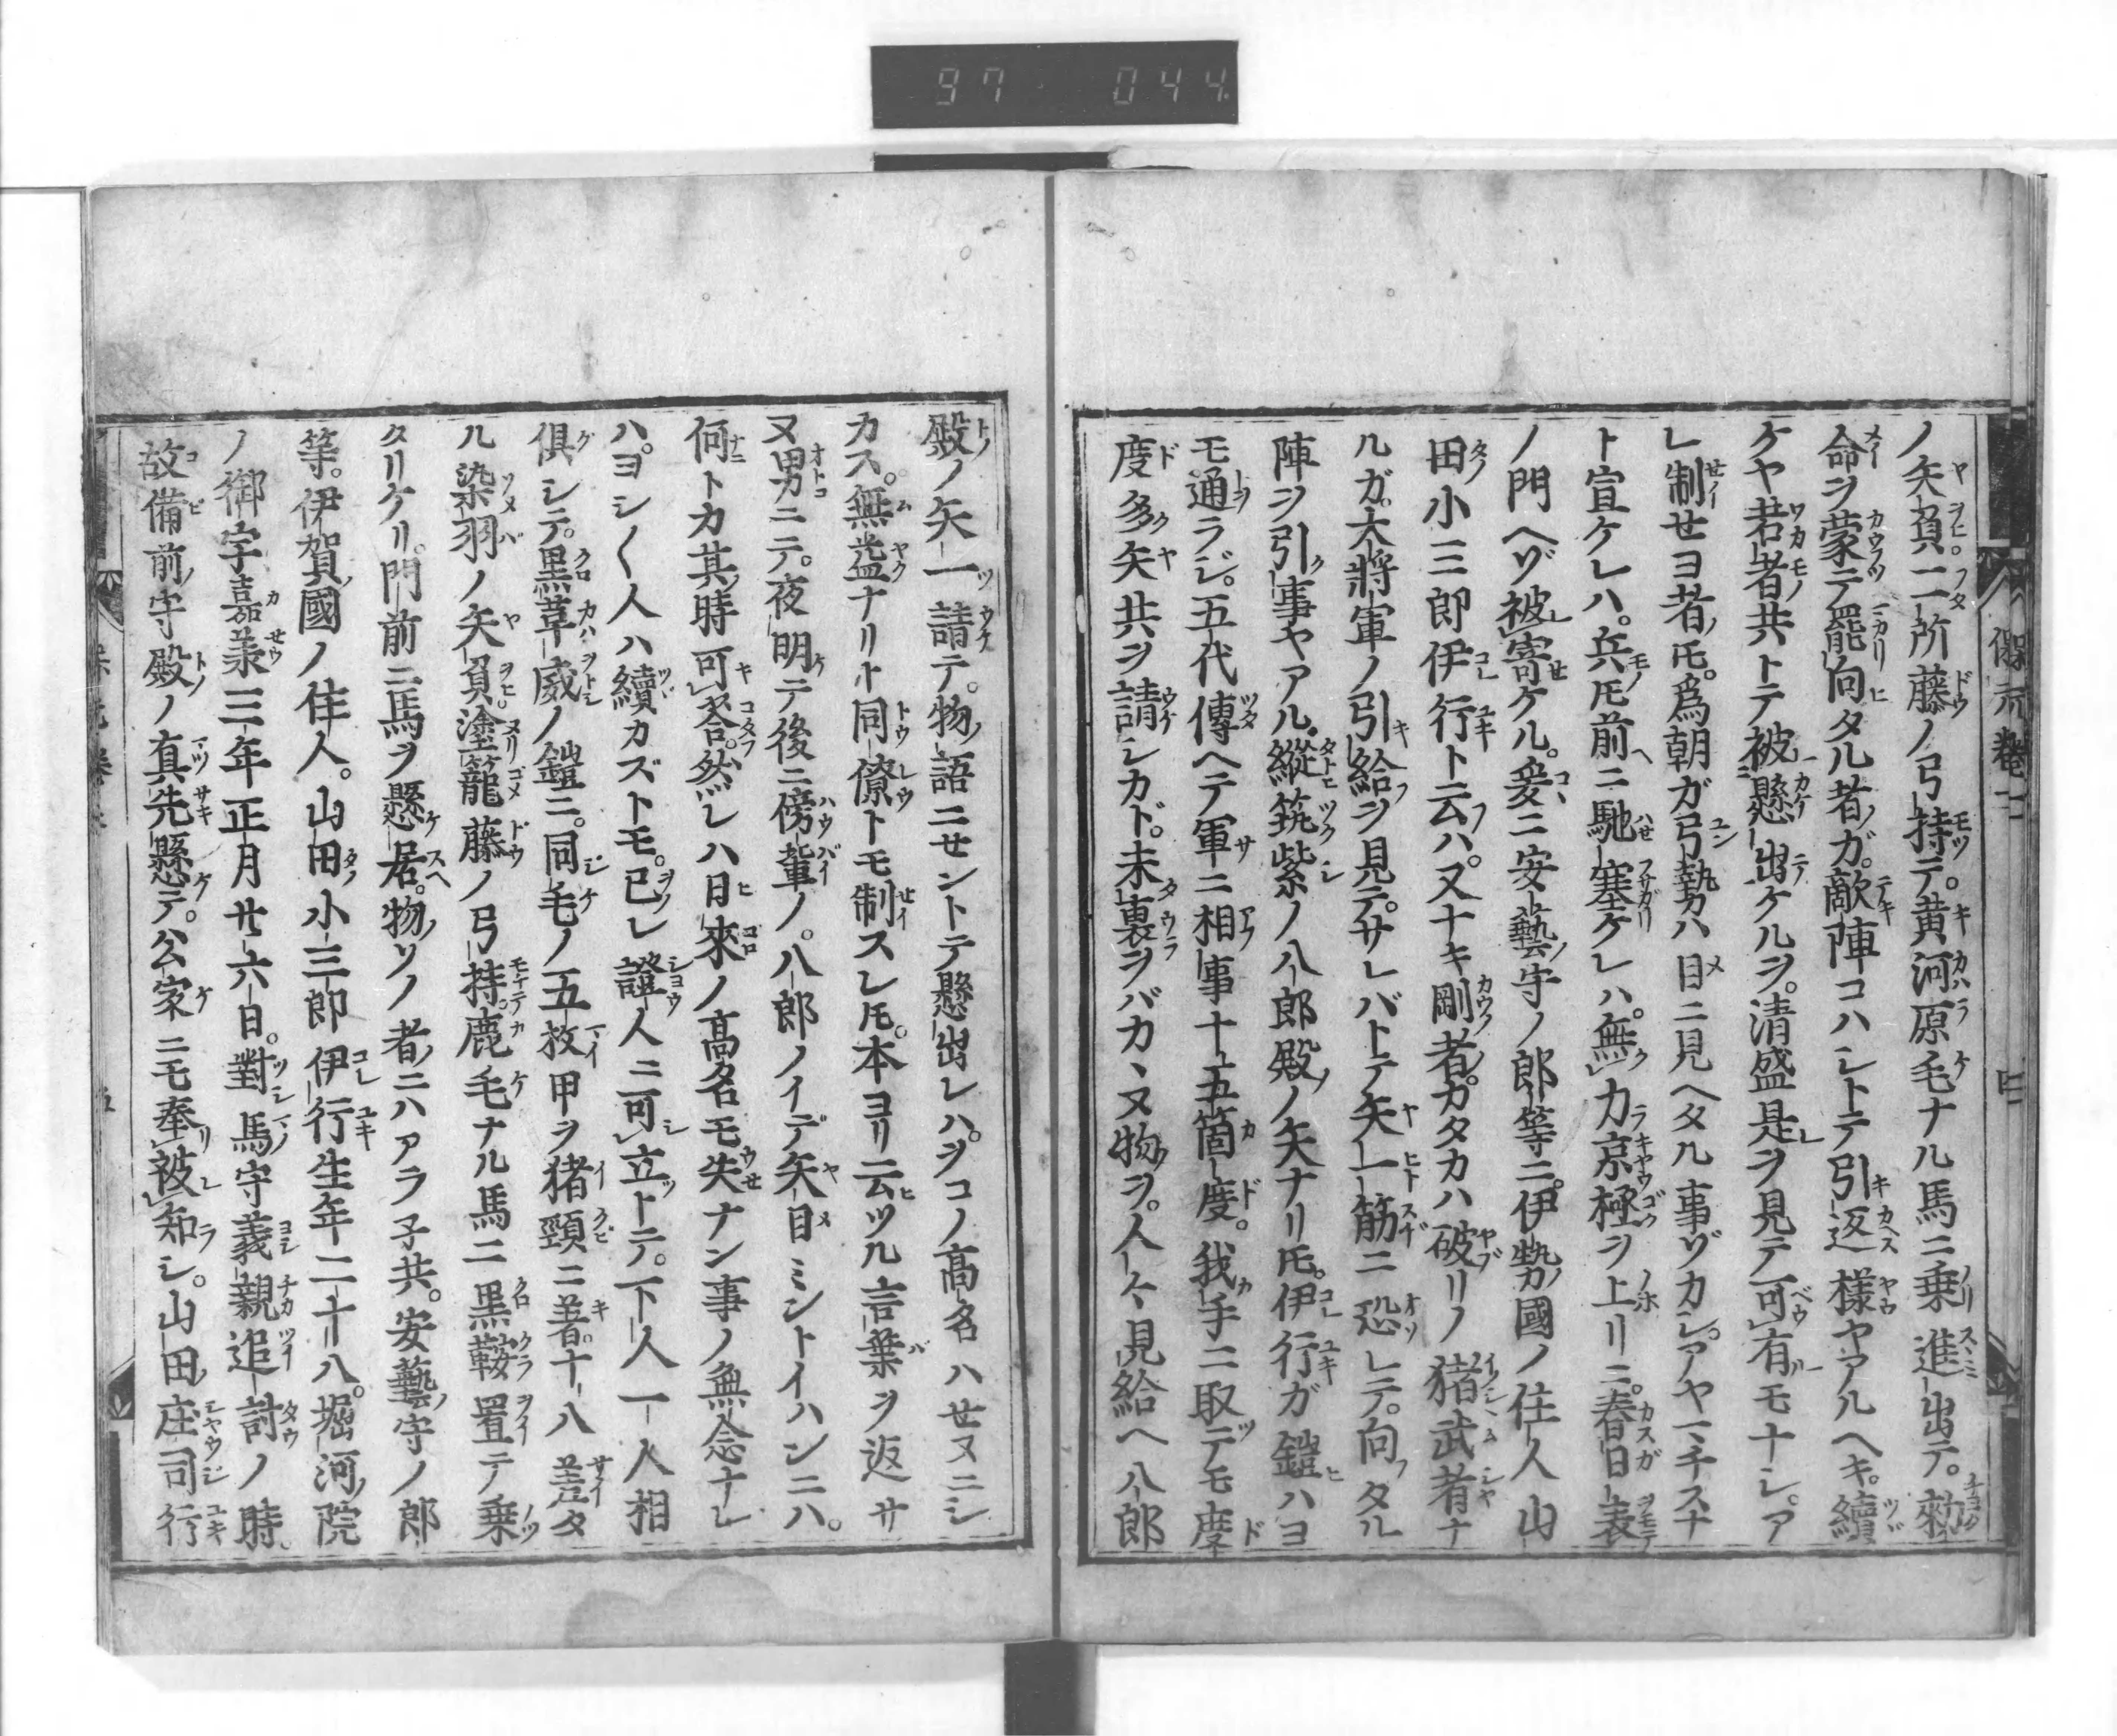 97 044
ノ矢負。二所藤ノ弓持テ。黄河原毛ナル馬ニ乗進出テ。勅
命ヲ蒙テ罷向タル者ガ。敵陣コハシトテ引返様ヤアルヘキ。續
ケヤ若者共トテ被懸出ケルヲ。清盛是ヲ見テ可有モナシ。ア
レ制せヨ者ノ𪜈。爲朝ガ弓勢ハ目ニ見ヘタル事ゾカシ。アヤマチスナ
ト宣ケレハ。兵𪜈前ニ馳塞ケレハ。無力京極ヲ上リニ。春日表
ノ門ヘゾ被寄ケル。爰ニ安藝守ノ郎等ニ。伊勢國ノ住人山
田小三郎伊行ト云ハ。又ナキ剛者。カタカハ破リノ猪武者ナ
ルガ。大將軍ノ引給ヲ見テ。サレバトテ矢一筋ニ恐レテ。向タル
陣ヲ引事ヤアル。縱筑紫ノ八郎殿ノ矢ナリ𪜈。伊行ガ鎧ハヨ
モ通ラジ。五代傳ヘテ軍ニ相事十五箇度。我手ニ取テモ度
度多矢共ヲ請シカド。未裏ヲバカヽヌ物ヲ。人々見給ヘ八郎
保元巻二
四
殿ノ矢一請テ。物語ニせントテ懸出レハ。ヲコノ高名ハせヌニシ
カス。無益ナリト同僚トモ制スレ𪜈。本ヨリ云ツル言葉ヲ返サ
ヌ男ニテ。夜明テ後ニ傍輩ノ。八郎ノイデ矢目ミントイハンニハ。
何トカ其時可答。然レハ日來ノ高名モ失ナン事ノ無念ナレ
ハ。ヨシ〱人ハ續カズトモ。已レ證人ニ可立トテ。下人一人相
俱シテ。黒革威ノ鎧ニ。同毛ノ五枚甲ヲ猪頸ニ著。十八差タ
ル染羽ノ矢負。塗籠藤ノ弓持。鹿毛ナル馬ニ黒鞍置テ乗
タリケリ。門前ニ馬ヲ懸居。物ソノ者ニハアラ子共。安藝守ノ郎
等。伊賀國ノ住人。山田小三郎伊行生年二十八。堀河院
ノ御宇嘉羕三年正月廿六日。對馬守義親追討ノ時。
故備前守殿ノ真先懸テ。公家ニモ奉被知シ。山田庄司行